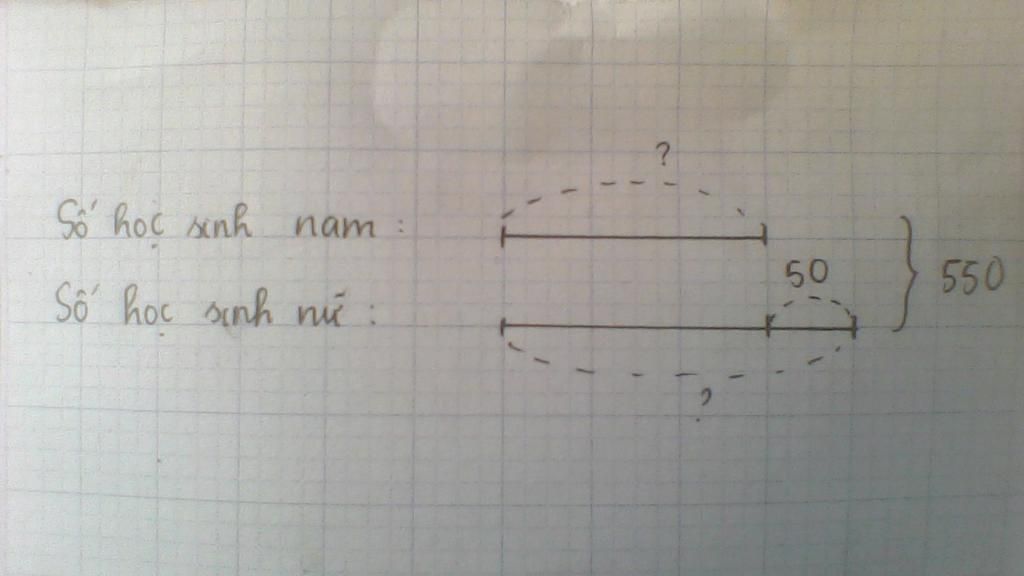 ?
Số học sinh nam :
50
550
Số học sinh nữ :
?